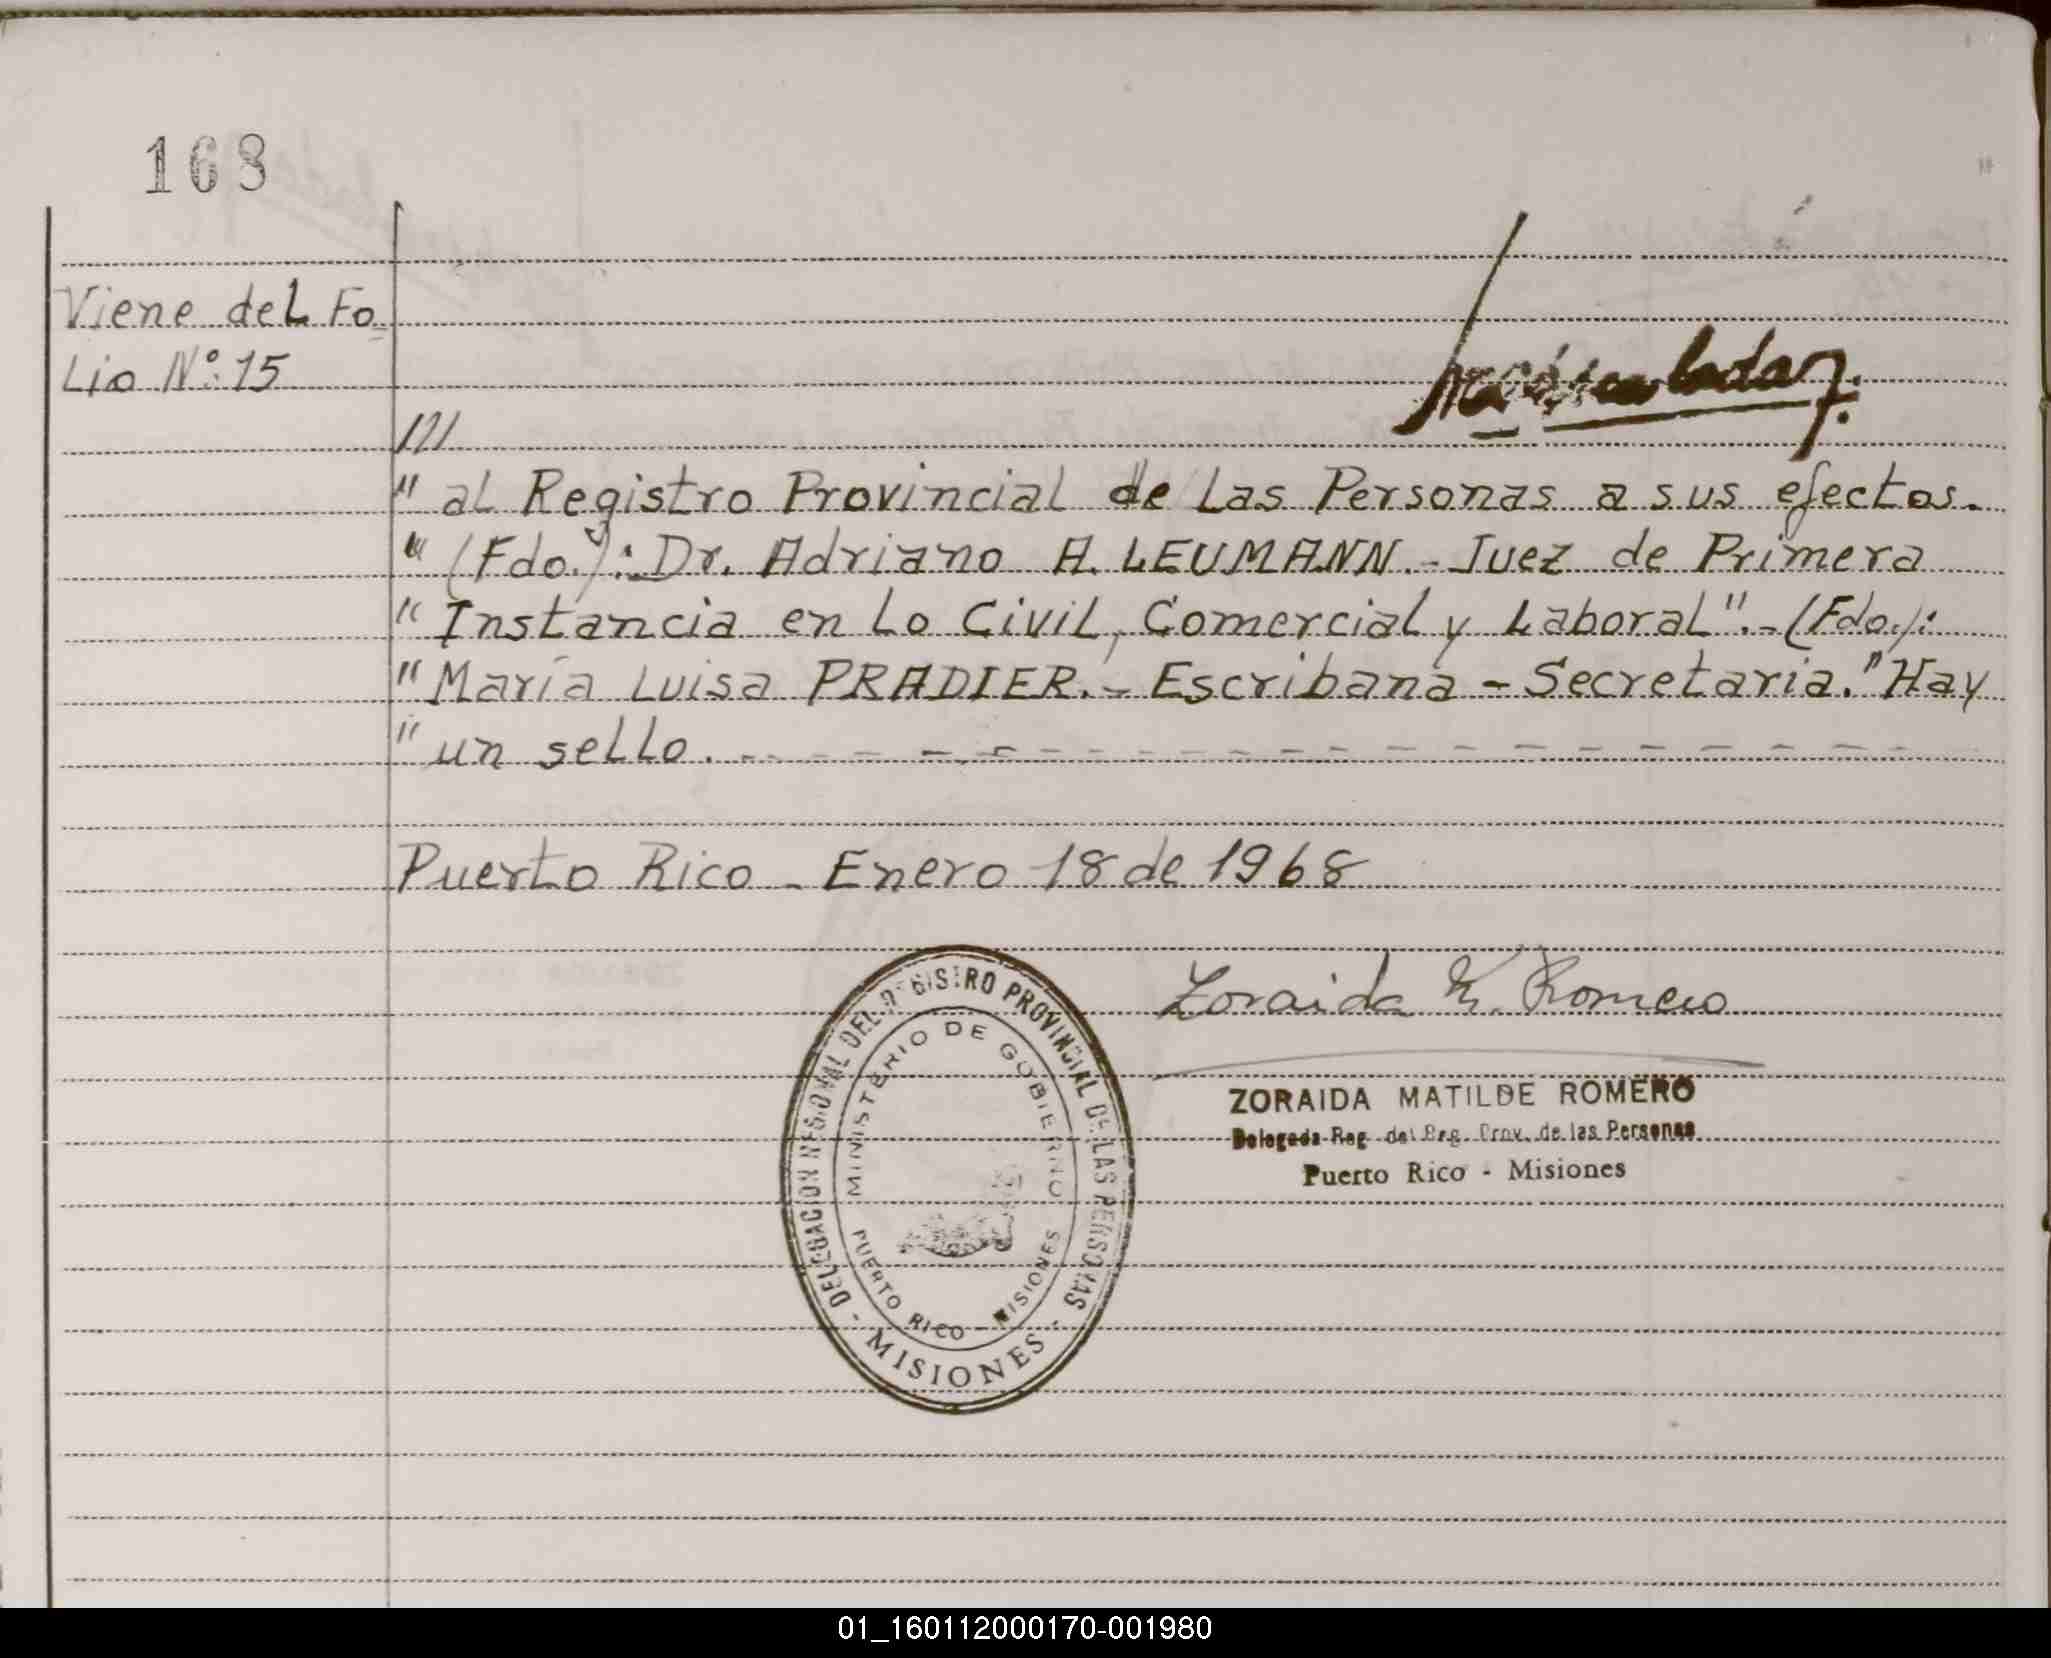 168
Viene del Fo_
lio Nº: 15
///
" al Registro Provincial de las Personas a sus efectos.
" (Fdo.): Dr. Adriano A. LEUMANN.- Juez de Primera
" Instancia en lo Civil, Comercial y Laboral".- (Fdo.):
" María Luisa PRADIER.- Escribana - Secretaria." Hay
" un sello. - - - - - - - - - - - - - - - - - - - -
Puerto Rico - Enero 18 de 1968
Zoraida M. Romero
ZORAIDA MATILDE ROMERO
Delegada Reg. del Reg. Prov. de las Personas
Puerto Rico - Misiones
DELEGACION REGIONAL DEL REGISTRO PROVINCIAL DE LAS PERSONAS
MINISTERIO DE GOBIERNO
PUERTO RICO - MISIONES
- MISIONES -
01_160112000170-001980